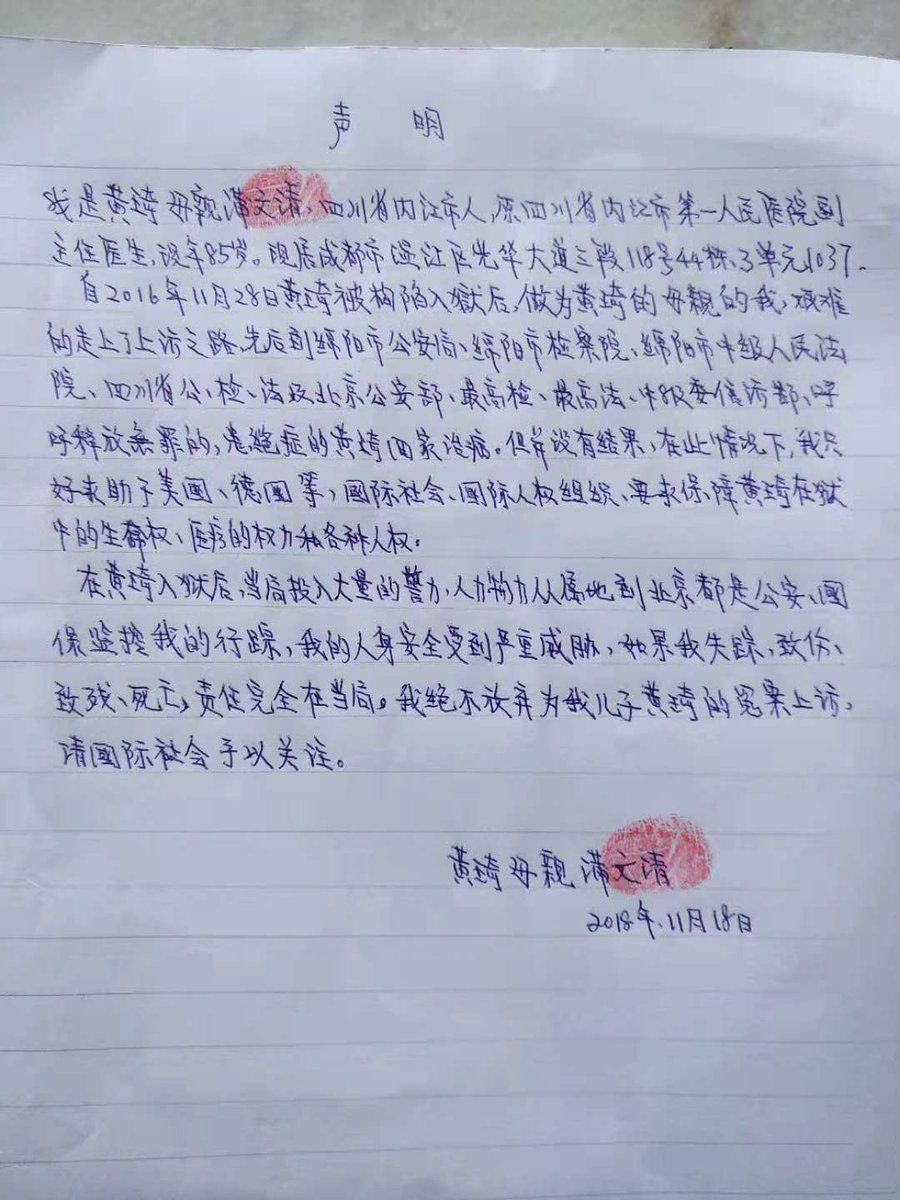 声 明
我是黄琦母親蒲文清，四川省内江市人，原四川省内江市第一人民医院副
主任医生，现年85岁。现居成都市温江区光华大道三段118号44栋、3单元1037.
自2016年11月28日黄琦被构陷入獄后，做为黄琦的母親的我，艰难
的走上了上访之路，先后到绵阳市公安局、绵阳市检察院、绵阳市中级人民法
院、四川省公、检、法及北京公安部、最高检、最高法、中纪委信访部、呼
吁释放無罪的，患绝症的黄琦回家治病。但并没有结果，在此情况下，我只
好求助于美國、德國等，國际社会、國际人权组织、要求保障黄琦在狱
中的生命权、医疗的权力和各种人权.
在黄琦入獄后，当局投入大量的警力，人力物力从属地到北京都是公安、國
保监控我的行踪，我的人身安全受到严重威胁，如果我失踪、致伤、
致残、死亡，责任完全在当局。我绝不放弃为我儿子黄琦的冤案上访，
请國际社会予以关注。
黄琦母親 蒲文清
2018年.11月18日